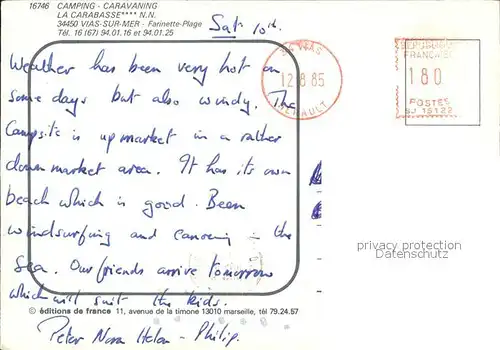 16746 CAMPING - CARAVANING
LA CARABASSE**** N.N.
34450 VIAS-SUR-MER - Farinette-Plage
Tél. 16 (67) 94.01.16 et 94.01.25
Sat 10th.
Weather has been very hot on
some days but also windy. The
Campsite is up market in a rather
down market area. It has its own
beach which is good. Been
windsurfing and canoeing in the
sea. Our friends arrive tomorrow
which will suit the kids.
© éditions de france 11, avenue de la timone 13010 marseille, tél 79.24.57
Peter Nora Helen - Philip.
34 VIAS
12 8 85
HERAULT
REPUBLIQUE
FRANCAISE
180
POSTES
SJ 15122
privacy protection
Datenschutz